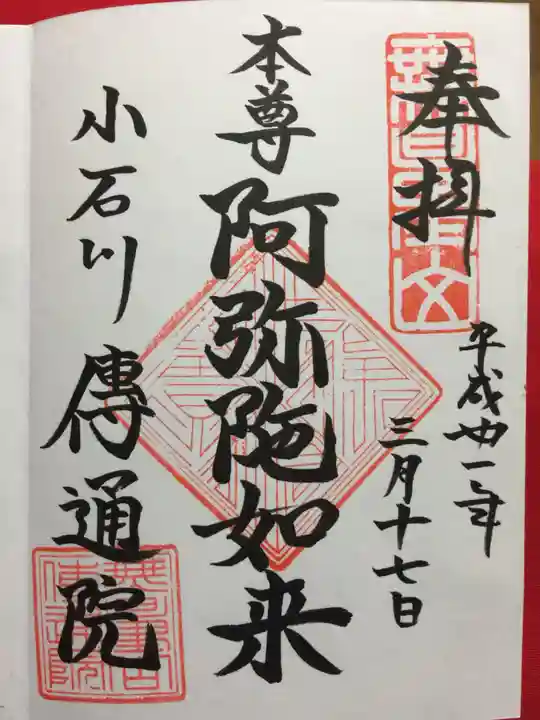 奉拝
平成廿一年
三月十七日
本尊
阿弥陀如来
小石川
傳通院